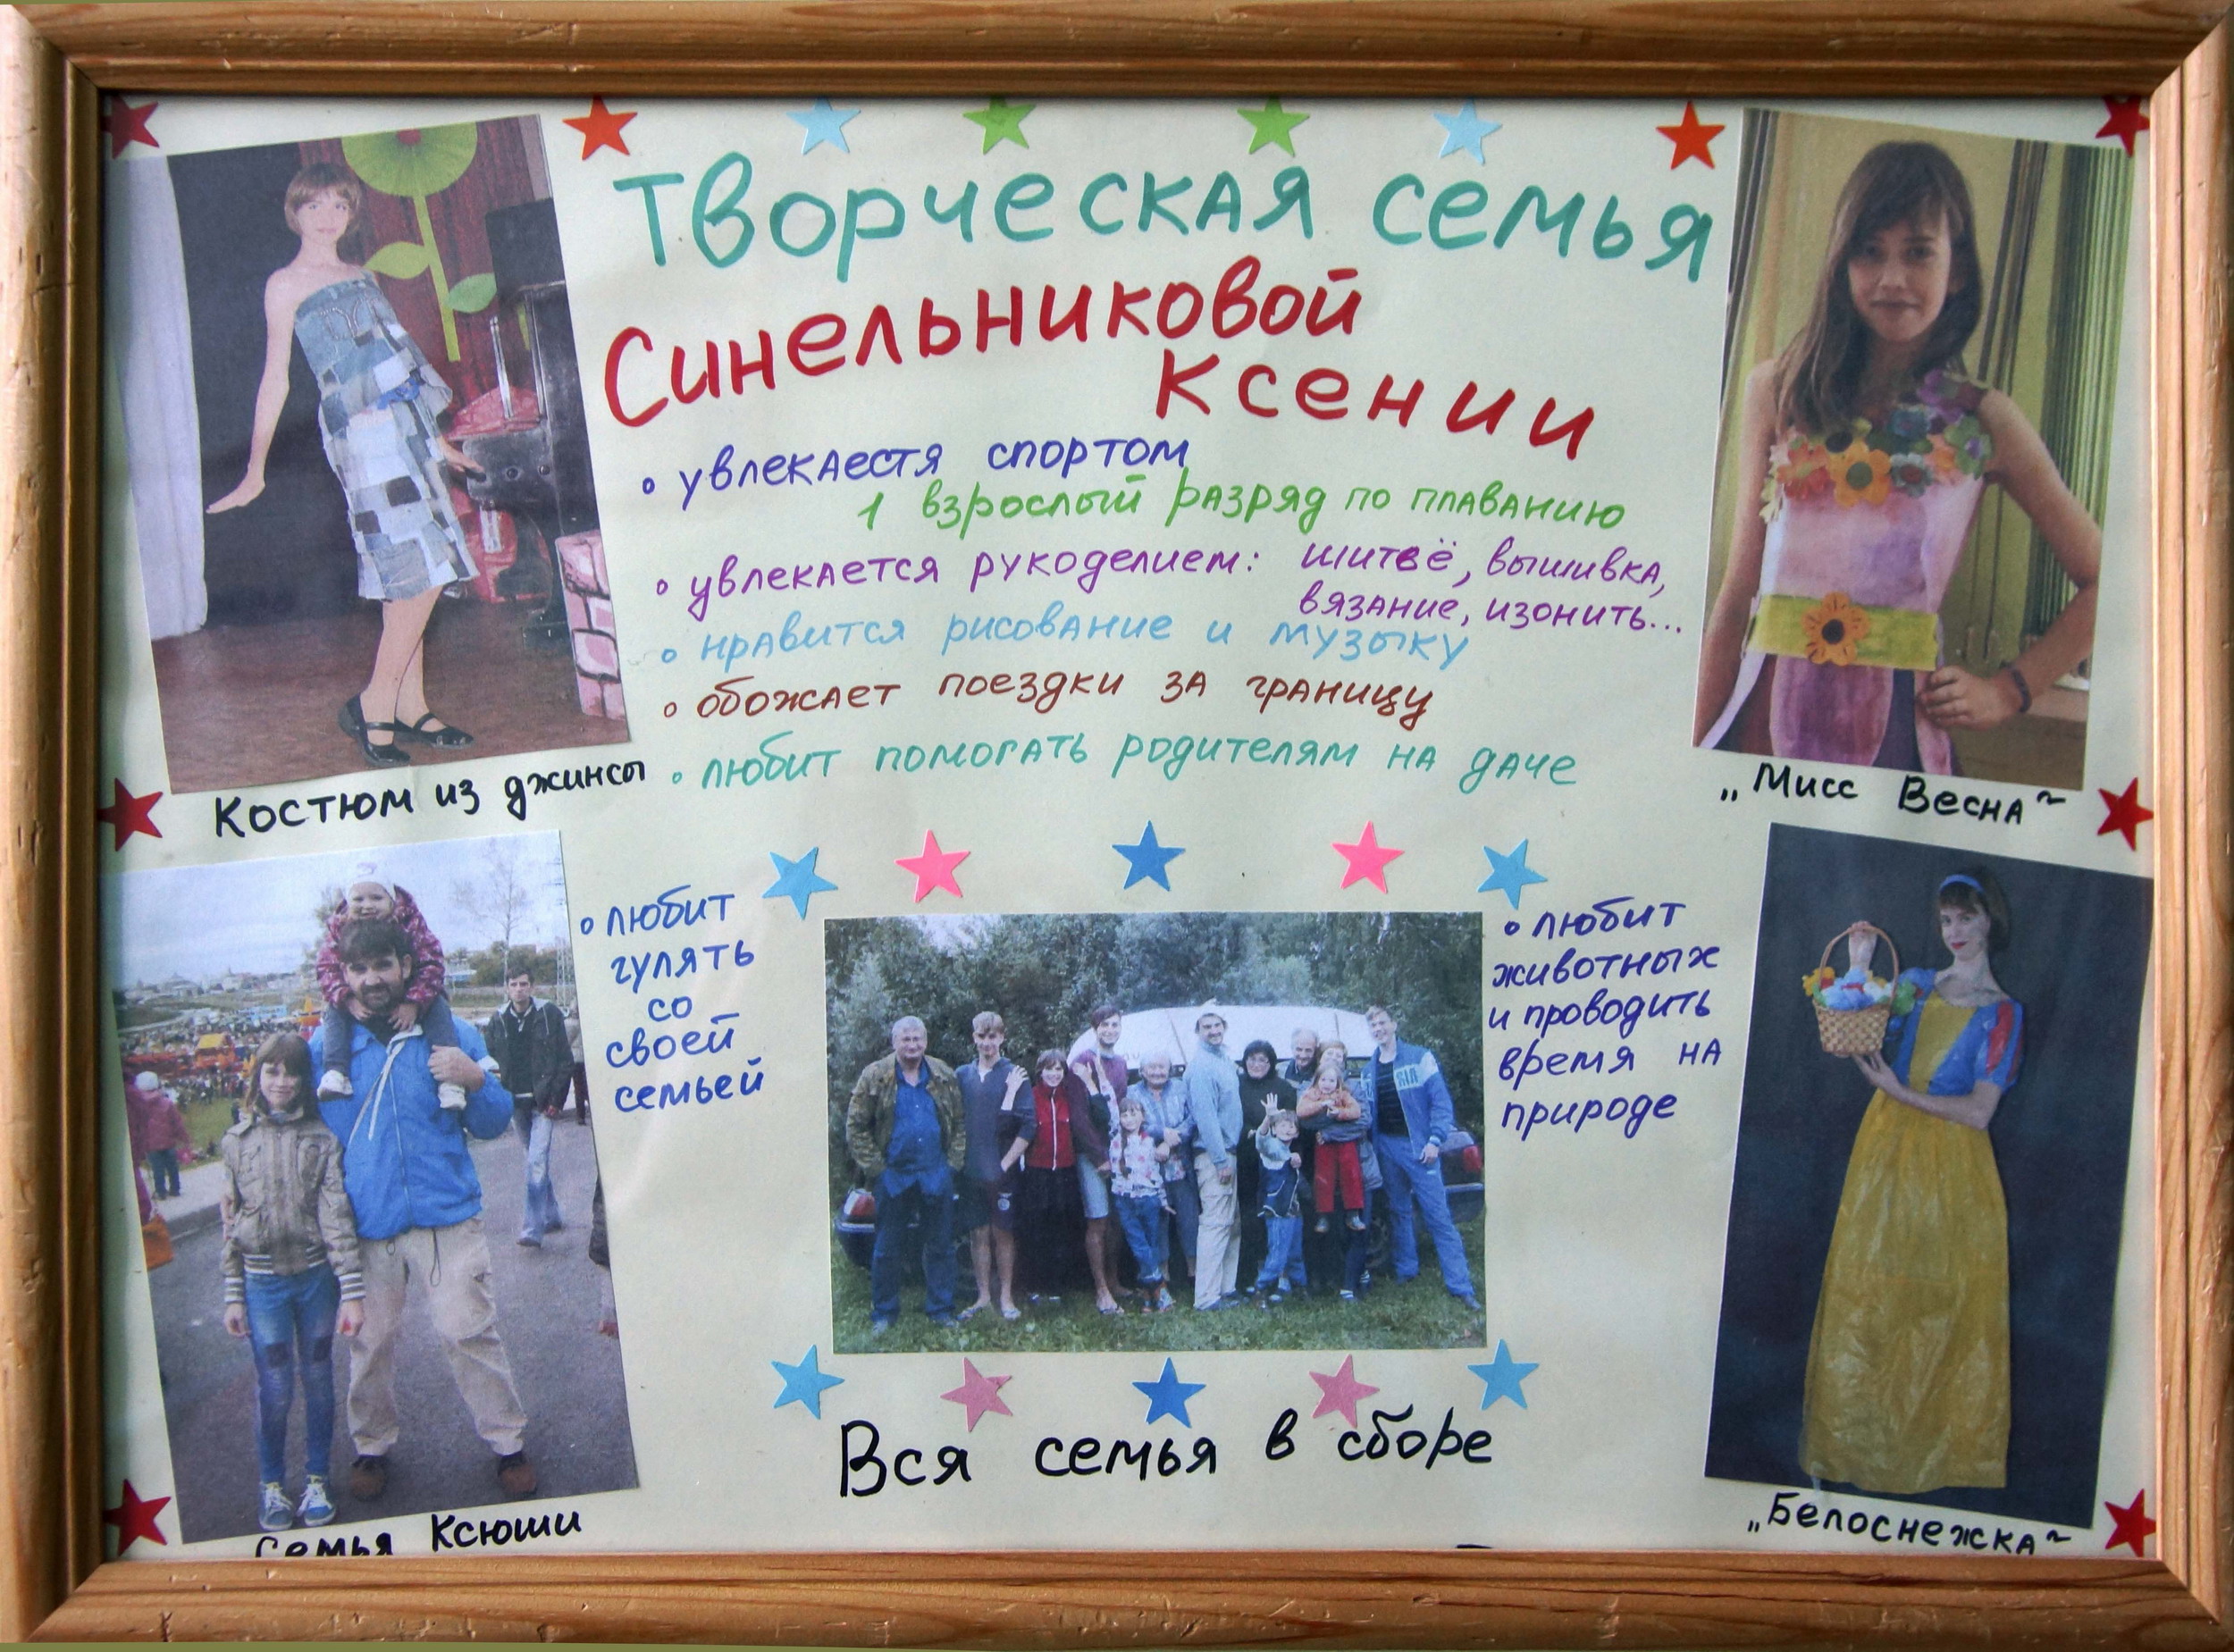 Творческая семья
Синельниковой
Ксении
• увлекаестя спортом
1 взрослый разряд по плаванию
• увлекается рукоделием: шитьё, вышивка,
вязание, изонить...
• нравится рисование и музыку
• обожает поездки за границу
• любит помогать родителям на даче
Костюм из джинсы
„Мисс Весна“
• любит
гулять
со
своей
семьей
• любит
животных
и проводить
время на
природе
Вся семья в сборе
Семья Ксюши
„Белоснежка“